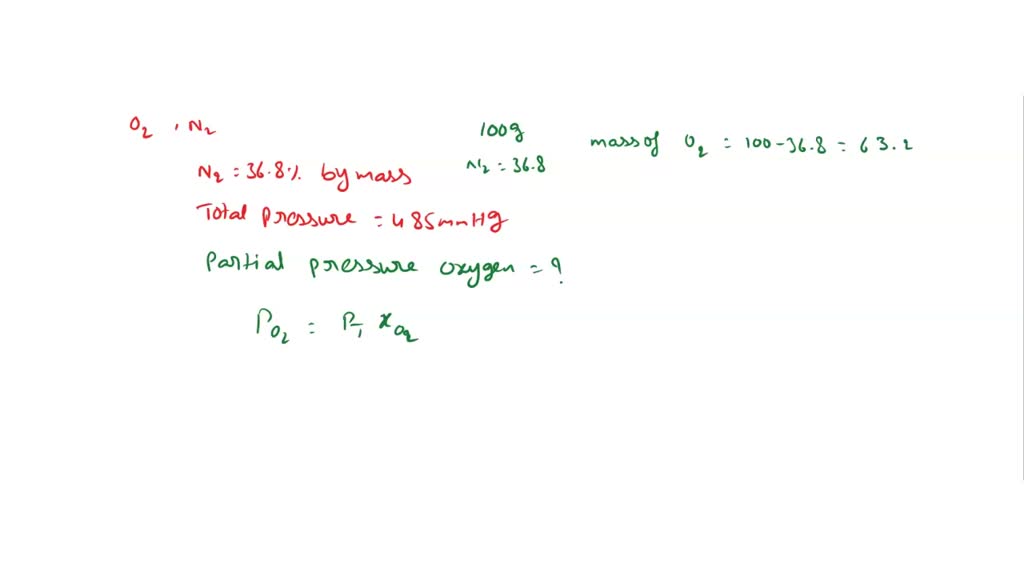 O₂ , N₂
N₂ = 36.8% by mass
Total pressure = 485mmHg
Partial pressure oxygen = ?
P_O₂ = P_T x_O₂
100g
N₂ = 36.8
mass of O₂ = 100-36.8 = 63.2